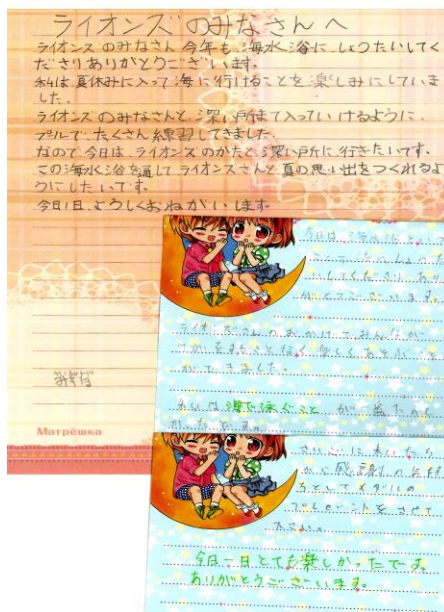 ライオンズのみなさんへ
ライオンズのみなさん今年も、海水浴に、しょうたいしてく
ださりありがとうございます。
私は、夏休みに入って海に行けることを楽しみにしていま
した。
ライオンズのみなさんと、深い所まで入っていけるように、
プールで、たくさん練習してきました。
なので、今日は、ライオンズのかたと深い所に、行きたいです。
この海水浴を通してライオンズさんと夏の思い出をつくれるよ
うにしたいです。
今日1日、よろしくおねがいします。
Матрёшка
今日は、海水浴と
ライオンズさんのおかげでみんなが
けがをすることなく楽しくあそぶこと
ができました。
私は海で泳ぐことが一番たのし
かったです。
さいごにわたしたち
から感謝の気持
ちとしてメダルの
プレゼントをさせて
下さい。
今日一日とても楽しかったです。
ありがとうございます。